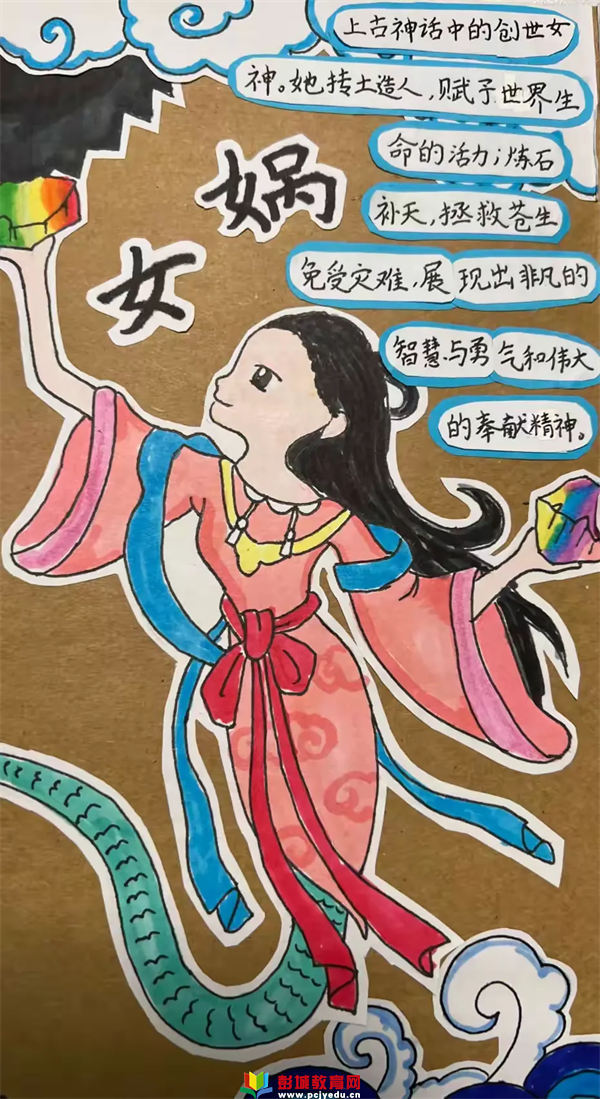 上古神话中的创世女
神。她抟土造人，赋予世界生
命的活力；炼石
补天，拯救苍生
免受灾难，展现出非凡的
智慧与勇气和伟大
的奉献精神。
女娲
彭城教育网
www.pcjyedu.cn